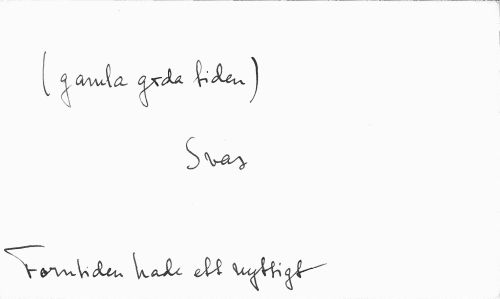 (gamla goda tiden)
Svar
Forntiden hade ett nyttigt